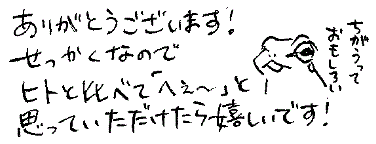 ありがとうございます!
せっかくなので
ヒトと比べて「へぇ〜」と
思っていただけたら嬉しいです!
ちがうって
おもしろい